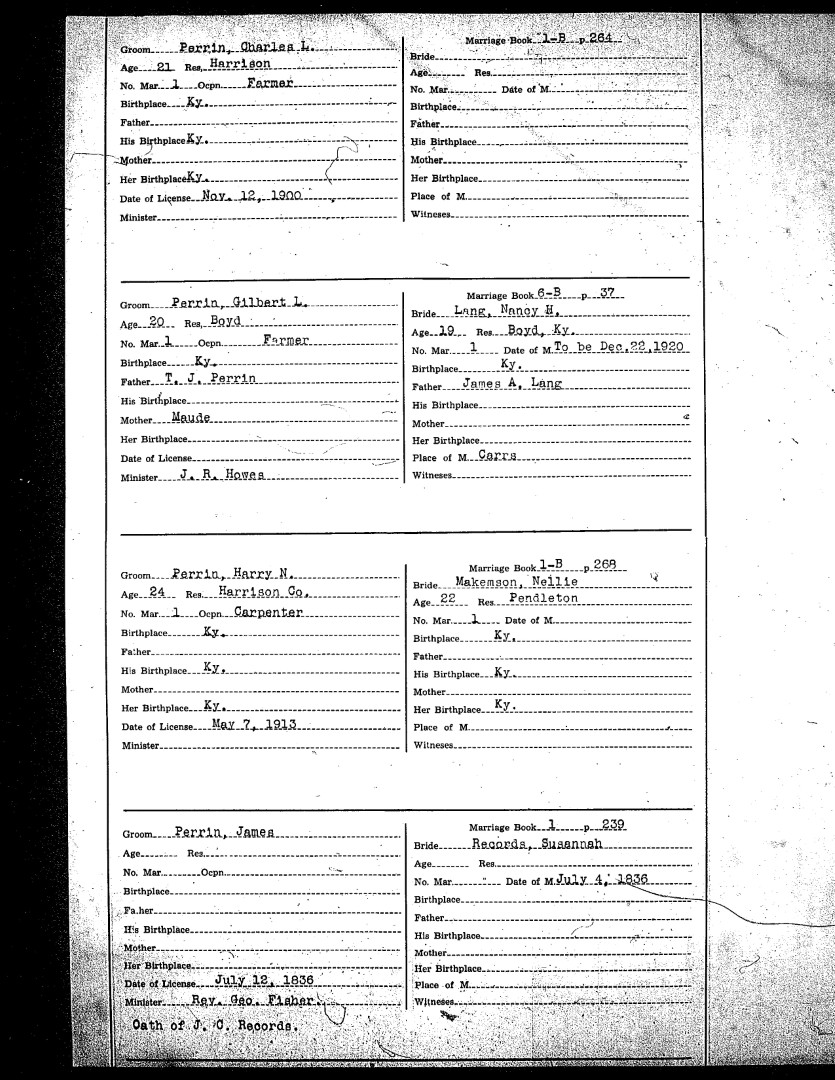 Groom Perrin, Charles L.
Age 21 Res. Harrison
No. Mar. 1 Ocpn. Farmer
Birthplace Ky.
Father
His Birthplace Ky.
Mother
Her Birthplace Ky.
Date of License Nov. 12, 1900
Minister
Marriage Book 1-B p. 264
Bride
Age Res.
No. Mar. Date of M.
Birthplace
Father
His Birthplace
Mother
Her Birthplace
Place of M.
Witneses
Groom Perrin, Gilbert L.
Age 20 Res. Boyd
No. Mar. 1 Ocpn. Farmer
Birthplace Ky.
Father T. J. Perrin
His Birthplace
Mother Maude
Her Birthplace
Date of License
Minister J. R. Howes
Marriage Book 6-B p. 37
Bride Lang, Nancy H.
Age 19 Res. Boyd, Ky.
No. Mar. 1 Date of M. To be Dec.22,1920
Birthplace Ky.
Father James A. Lang
His Birthplace
Mother
Her Birthplace
Place of M. Carrs
Witneses
Groom Perrin, Harry N.
Age 24 Res. Harrison Co.
No. Mar. 1 Ocpn. Carpenter
Birthplace Ky.
Father
His Birthplace Ky.
Mother
Her Birthplace Ky.
Date of License May 7, 1913
Minister
Marriage Book 1-B p. 268
Bride Makemson, Nellie
Age 22 Res. Pendleton
No. Mar. 1 Date of M.
Birthplace Ky.
Father
His Birthplace Ky.
Mother
Her Birthplace Ky.
Place of M.
Witneses
Groom Perrin, James
Age Res.
No. Mar. Ocpn.
Birthplace
Father
His Birthplace
Mother
Her Birthplace
Date of License July 12, 1836
Minister Rev. Geo. Fisher.
Oath of J. C. Records.
Marriage Book 1 p. 239
Bride Records, Susannah
Age Res.
No. Mar. Date of M. July 4, 1836
Birthplace
Father
His Birthplace
Mother
Her Birthplace
Place of M.
Witneses